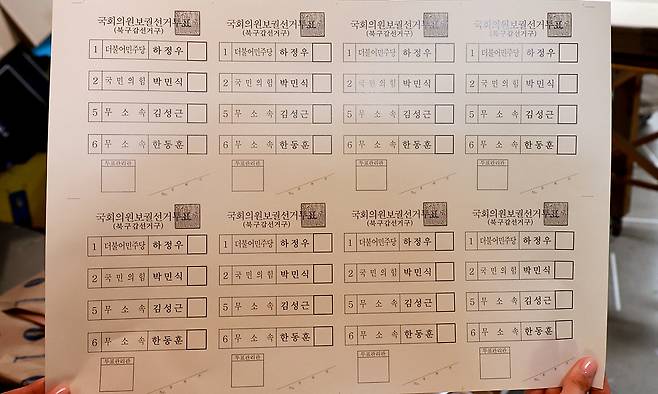 국회의원보궐선거투표
(북구갑선거구)
1 더불어민주당 하정우
2 국민의힘 박민식
5 무소속 김성근
6 무소속 한동훈
투표관리관
국회의원보궐선거투표
(북구갑선거구)
1 더불어민주당 하정우
2 국민의힘 박민식
5 무소속 김성근
6 무소속 한동훈
투표관리관
국회의원보궐선거투표
(북구갑선거구)
1 더불어민주당 하정우
2 국민의힘 박민식
5 무소속 김성근
6 무소속 한동훈
투표관리관
국회의원보궐선거투표
(북구갑선거구)
1 더불어민주당 하정우
2 국민의힘 박민식
5 무소속 김성근
6 무소속 한동훈
투표관리관
국회의원보궐선거투표
(북구갑선거구)
1 더불어민주당 하정우
2 국민의힘 박민식
5 무소속 김성근
6 무소속 한동훈
투표관리관
국회의원보궐선거투표
(북구갑선거구)
1 더불어민주당 하정우
2 국민의힘 박민식
5 무소속 김성근
6 무소속 한동훈
투표관리관
국회의원보궐선거투표
(북구갑선거구)
1 더불어민주당 하정우
2 국민의힘 박민식
5 무소속 김성근
6 무소속 한동훈
투표관리관
국회의원보궐선거투표
(북구갑선거구)
1 더불어민주당 하정우
2 국민의힘 박민식
5 무소속 김성근
6 무소속 한동훈
투표관리관